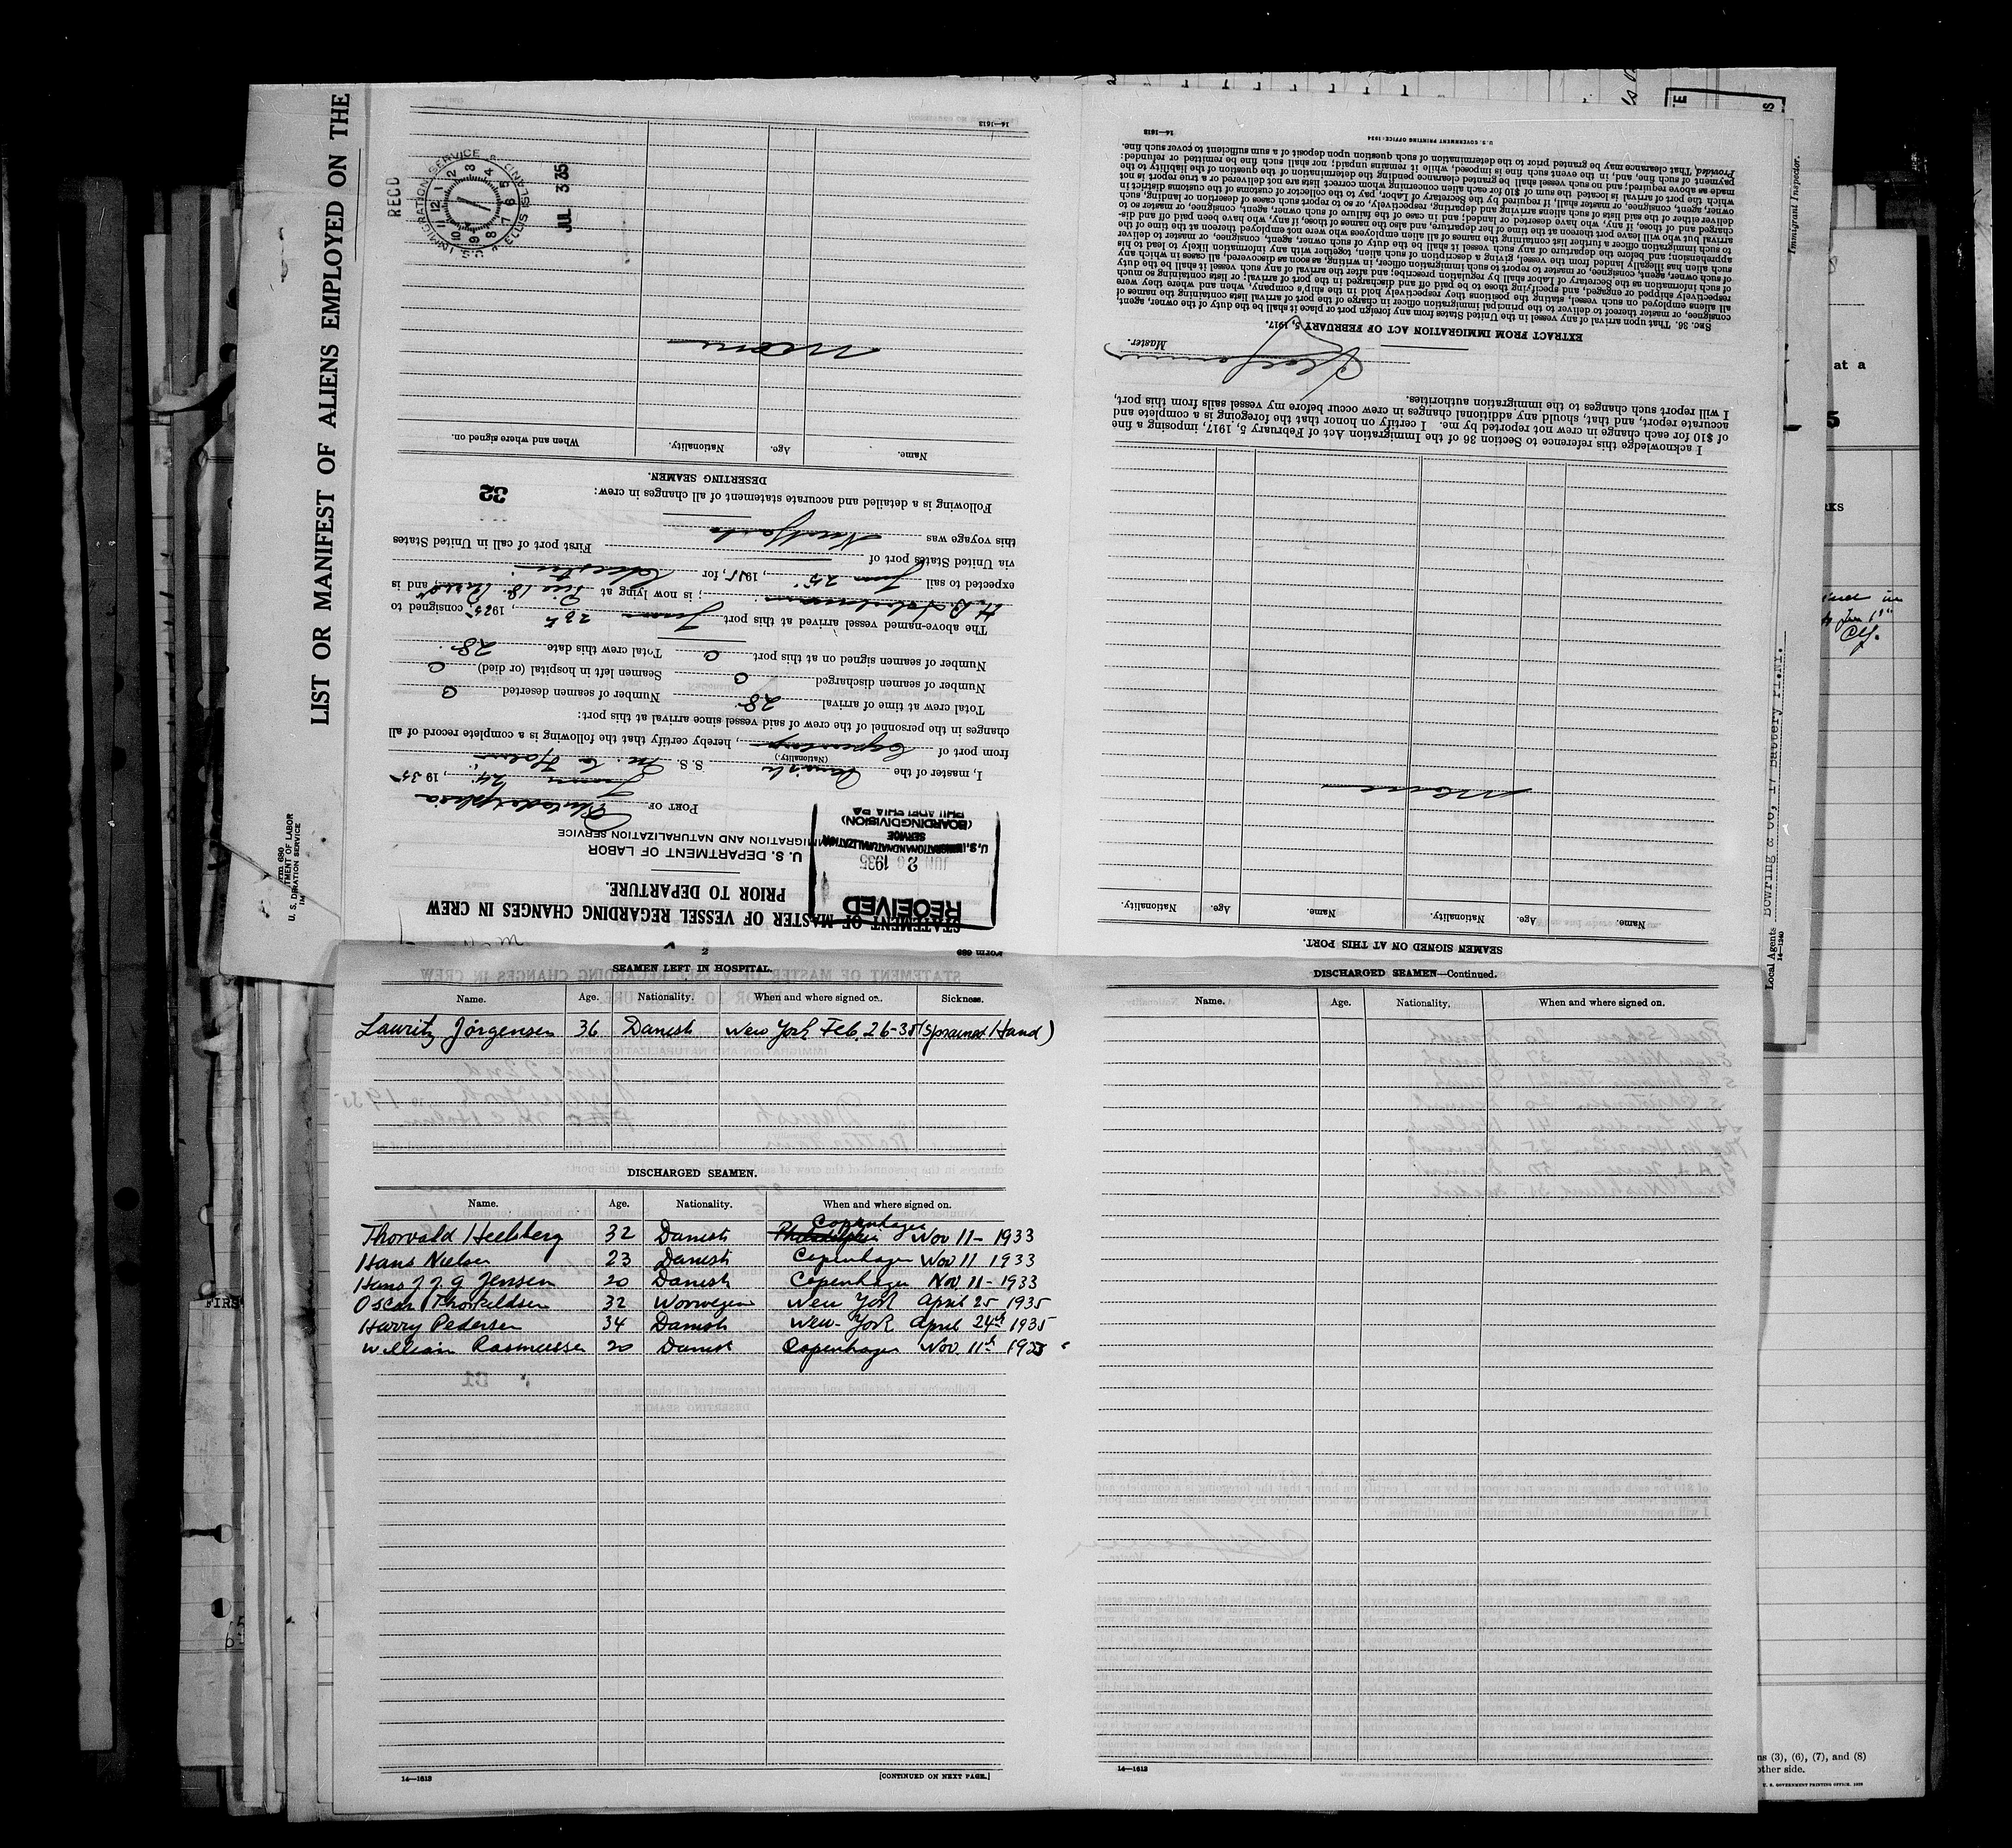 LIST OR MANIFEST OF ALIENS EMPLOYED ON THE
U. S. DEPARTMENT OF LABOR
REC'D
IMMIGRATION SERVICE
JUL 3 35
STATEMENT OF MASTER OF VESSEL REGARDING CHANGES IN CREW
PRIOR TO DEPARTURE.
U. S. DEPARTMENT OF LABOR
IMMIGRATION AND NATURALIZATION SERVICE
RECEIVED
1935
U.S. IMMIGRATION AND NATURALIZATION
SERVICE
(BOARDING DIVISION)
PHILADELPHIA PA
PORT OF Philadelphia
24, 1935
I, master of the Danish S. S. M. C. Holm
(Nationality.)
from port of, hereby certify that the following is a complete record of all
changes in the personnel of the crew of said vessel since arrival at this port:
Total crew at time of arrival 28 Number of seamen deserted 0
Number of seamen discharged 0 Seamen left in hospital (or died) 0
Number of seamen signed on at this port 0 Total crew this date 28
The above-named vessel arrived at this port, 1935, consigned to
; is now lying at Pier 18, and is
expected to sail 25, 1935, for
via United States port of First port of call in United States
this voyage was New York
Following is a detailed and accurate statement of all changes in crew:
32
DESERTING SEAMEN.
Name. Age. Nationality. When and where signed on.
None
14—1613
SEAMEN SIGNED ON AT THIS PORT.
Name. Age. Nationality. Name. Age. Nationality.
None
I acknowledge this reference to Section 36 of the Immigration Act of February 5, 1917, imposing a fine
of $10 for each change in crew not reported by me. I certify on honor that the foregoing is a complete and
accurate report, and that, should any additional changes in crew occur before my vessel sails from this port,
I will report such changes to the immigration authorities.
Master.
EXTRACT FROM IMMIGRATION ACT OF FEBRUARY 5, 1917.
SEC. 36. That upon arrival of any vessel in the United States from any foreign port or place it shall be the duty of the owner, agent,
consignee, or master thereof to deliver to the principal immigration officer in charge of the port of arrival lists containing the names of
all aliens employed on such vessel, stating the positions they respectively hold in the ship's company, when and where they were
respectively shipped or engaged, and specifying those to be paid off and discharged in the port of arrival; or lists containing so much
of such information as the Secretary of Labor shall by regulation prescribe; and after the arrival of any such vessel it shall be the duty
of such owner, agent, consignee, or master to report to such immigration officer, in writing, as soon as discovered, all cases in which any
such alien has illegally landed from the vessel, giving a description of such alien, together with any information likely to lead to his
apprehension; and before the departure of any such vessel it shall be the duty of such owner, agent, consignee, or master to deliver
to such immigration officer a further list containing the names of all alien employees who were not employed thereon at the time of the
arrival but who will leave port thereon at the time of her departure, and also the names of those, if any, who have been paid off and dis-
charged and of those, if any, who have deserted or landed; and in case of the failure of such owner, agent, consignee, or master so to
deliver either of the said lists of such aliens arriving and departing, respectively, or so to report such cases of desertion or landing, such
owner, agent, consignee, or master shall, if required by the Secretary of Labor, pay to the collector of customs of the customs district in
which the port of arrival is located the sum of $10 for each alien concerning whom correct lists are not delivered or a true report is not
made as above required; and no such vessel shall be granted clearance pending the determination of the question of the liability to the
payment of such fine, and, in the event such fine is imposed, while it remains unpaid; nor shall such fine be remitted or refunded:
Provided, That clearance may be granted prior to the determination of such question upon deposit of a sum sufficient to cover such fine.
U. S. GOVERNMENT PRINTING OFFICE: 1934
14—1613
Immigrant Inspector.
Local Agents Bowring & Co, 17 Battery Pl.NY.
14—1240
at a
2
SEAMEN LEFT IN HOSPITAL.
Name. Age. Nationality. When and where signed on. Sickness.
Lauritz Jörgensen 36 Danish New York Feb. 26-35 (Sprained Hand)
DISCHARGED SEAMEN.
Name. Age. Nationality. When and where signed on.
Copenhagen
Thorvald Heelsberg 32 Danish Philadelphia Nov 11- 1933
Hans Nielsen 23 Danish Copenhagen Nov 11 1933
Hans J. J. G Jensen 20 Danish Copenhagen Nov. 11- 1933
Oscar Thorkeldsen 32 Norwegen New York April 25 1935
Harry Pedersen 34 Danish New-York April 24th 1935
William Rasmussen 20 Danish Copenhagen Nov. 11th
14—1613
[CONTINUED ON NEXT PAGE.]
DISCHARGED SEAMEN—Continued.
Name. Age. Nationality. When and where signed on.
14—1613
FIRS
ns (3), (6), (7), and (8)
other side.
U. S. GOVERNMENT PRINTING OFFICE